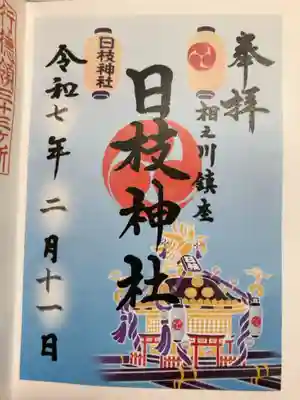 奉拝
相之川鎮座
日枝神社
日枝神社
令和七年二月十一日
行徳領三十三ヶ所